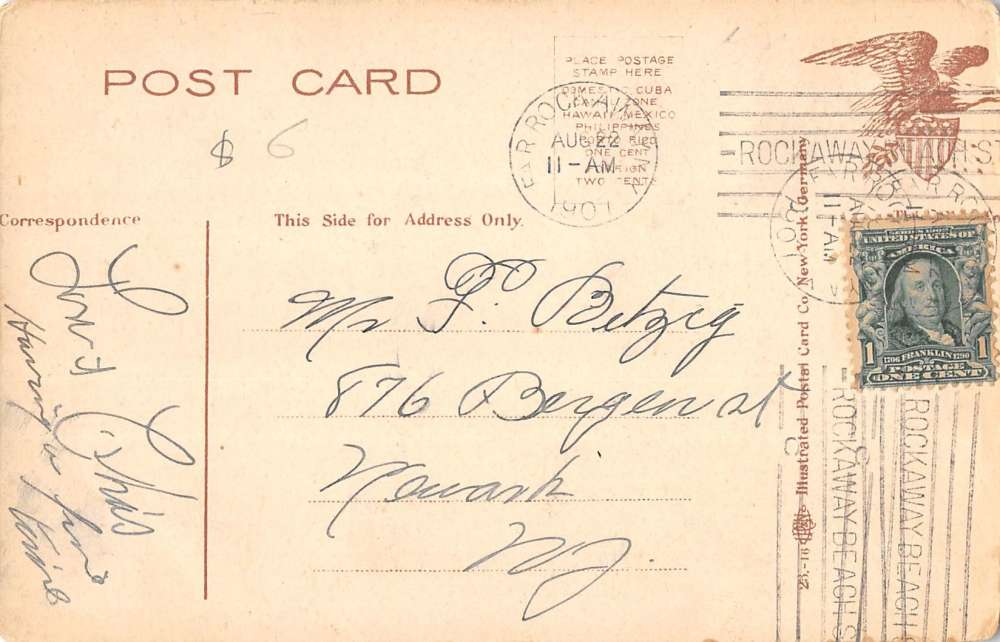 POST CARD
PLACE POSTAGE
STAMP HERE
DOMESTIC CUBA
CANAL ZONE
HAWAII, MEXICO
PHILIPPINES
PORTO RICO
ONE CENT
FOREIGN
TWO CENTS
FAR ROCKAWAY
AUG 22
11-AM
1907
ROCKAWAY BEACH S
$ 6
Correspondence
This Side for Address Only.
Mr F. Betzig
876 Bergen st
Newark
NJ
Having a fine
UNITED STATES OF
AMERICA
1706 FRANKLIN 1790
POSTAGE
1 ONE CENT
11-AM
1907
ROCKAWAY BEACH S
ROCKAWAY BEACH
Illustrated Postal Card Co., New York-Germany